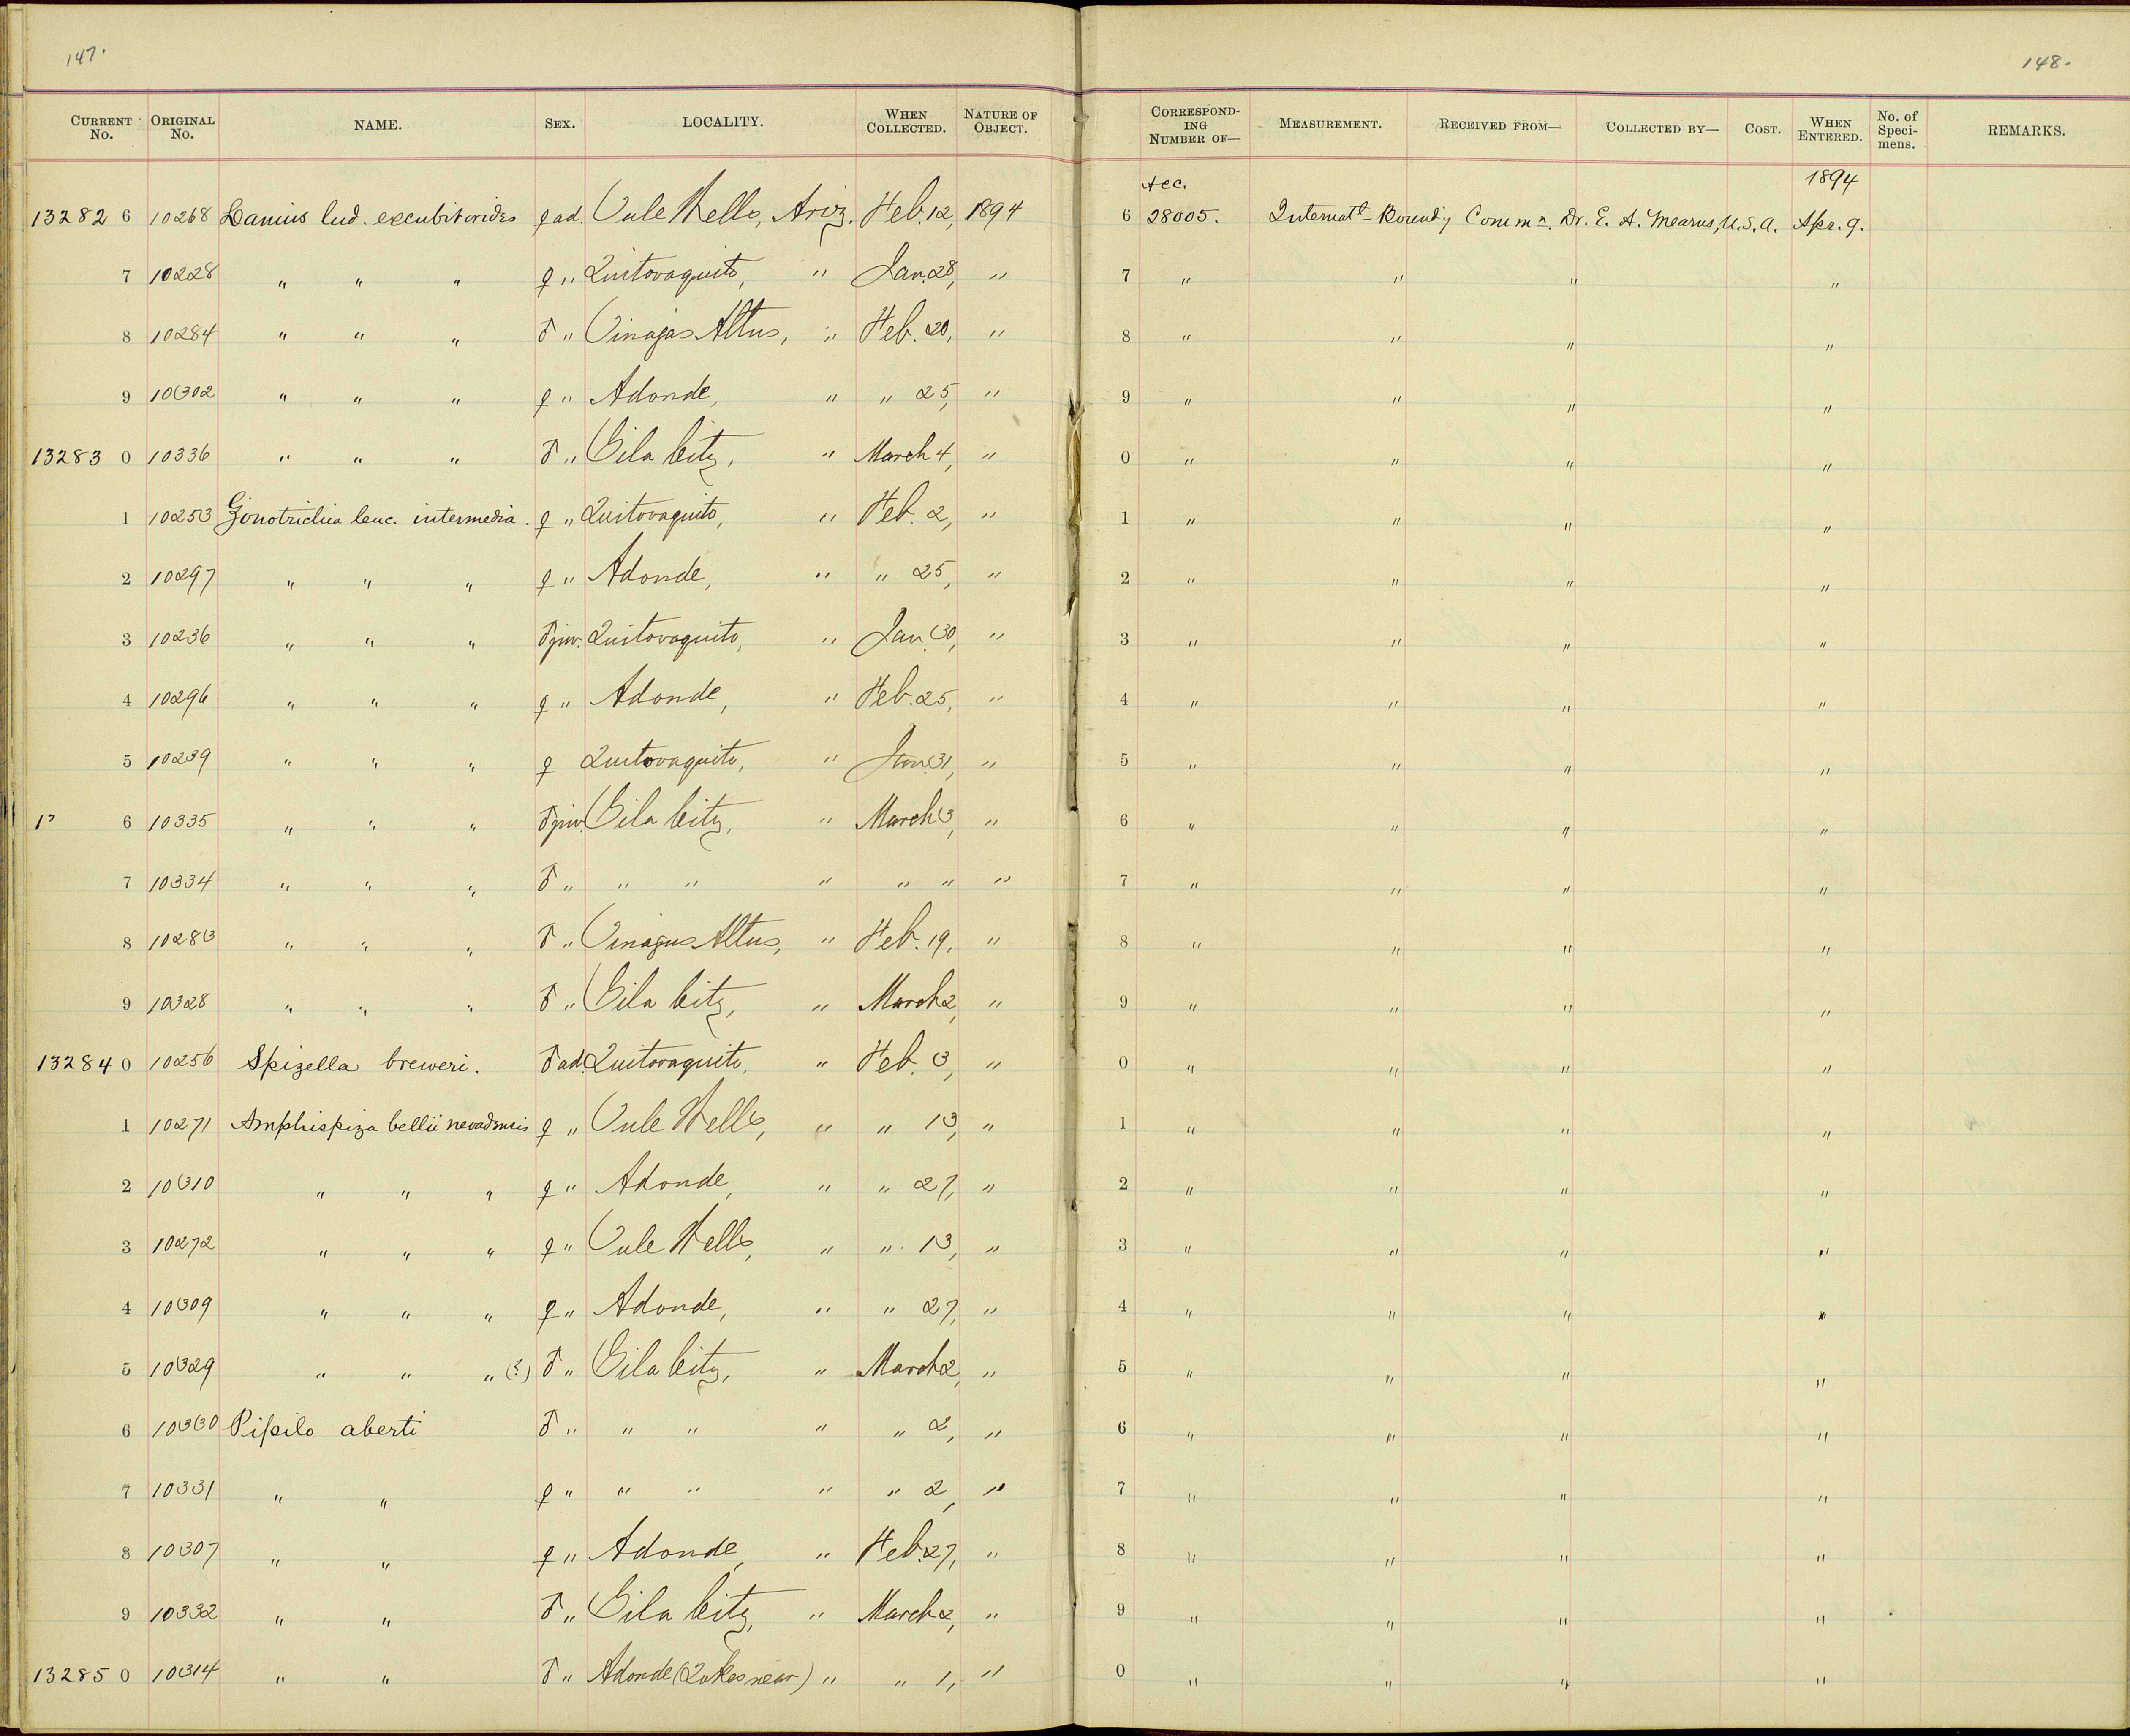 147.
148.
CURRENT No. ORIGINAL No. NAME. SEX. LOCALITY. WHEN COLLECTED. NATURE OF OBJECT. CORRESPONDING NUMBER OF— MEASUREMENT. RECEIVED FROM— COLLECTED BY— COST. WHEN ENTERED. No. of Specimens. REMARKS.
Acc. 1894
13282 6 10268 Lanius lud. excubitorides ♀ ad. Tule Wells, Ariz. Feb. 12, 1894 6 28005. Internatl Boundy Commn. Dr. E. A. Mearns, U.S.A. Apr. 9.
7 10228 " " " ♀ " Quitovaquito, " Jan. 28, " 7 " " " "
8 10284 " " " ♂ " Tinajas Altus, " Feb. 20, " 8 " " " "
9 10302 " " " ♀ " Adonde, " " 25, " 9 " " " "
13283 0 10336 " " " ♂ " Gila City, " March 4, " 0 " " " "
1 10253 Zonotrichia leuc. intermedia. ♀ " Quitovaquito, " Feb. 2, " 1 " " " "
2 10297 " " " ♀ " Adonde, " " 25, " 2 " " " "
3 10236 " " " ♂ juv. Quitovaquito, " Jan. 30, " 3 " " " "
4 10296 " " " ♀ " Adonde, " Feb. 25, " 4 " " " "
5 10239 " " " ♀ Quitovaquito, " Jan. 31, " 5 " " " "
1 6 10335 " " " ♂ juv. Gila City, " March 3, " 6 " " " "
7 10334 " " " ♂ " " " " " " " 7 " " " "
8 10283 " " " ♂ " Tinajus Altus, " Feb. 19, " 8 " " " "
9 10328 " " " ♂ " Gila City, " March 2, " 9 " " " "
13284 0 10256 Spizella breweri. ♂ ad. Quitovaquito, " Feb. 3, " 0 " " " "
1 10271 Amphispiza bellii nevadensis ♀ " Tule Wells, " " 13, " 1 " " " "
2 10310 " " " ♀ " Adonde, " " 27, " 2 " " " "
3 10272 " " " ♀ " Tule Wells, " " 13, " 3 " " " "
4 10309 " " " ♀ " Adonde, " " 27, " 4 " " " "
5 10329 " " " (?) ♂ " Gila City, " March 2, " 5 " " " "
6 10330 Pipilo aberti ♂ " " " " " 2, " 6 " " " "
7 10331 " " ♀ " " " " " 2, " 7 " " " "
8 10307 " " ♀ " Adonde, " Feb. 27, " 8 " " " "
9 10332 " " ♂ " Gila City, " March 2, " 9 " " " "
13285 0 10314 " " ♂ " Adonde ( near) " " 1, " 0 " " " "